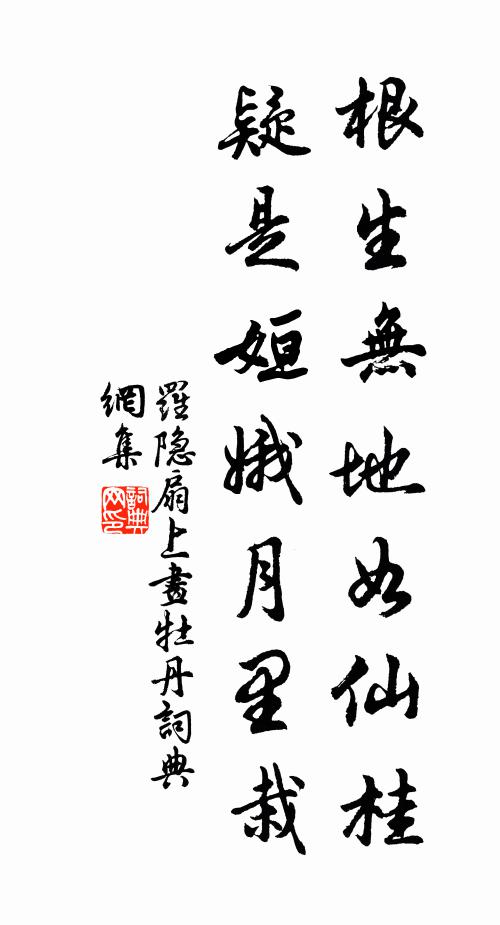 根生無地如仙桂
疑是姮娥月里栽
羅隐扇上畫牡丹詞典
網集
詞典
网印